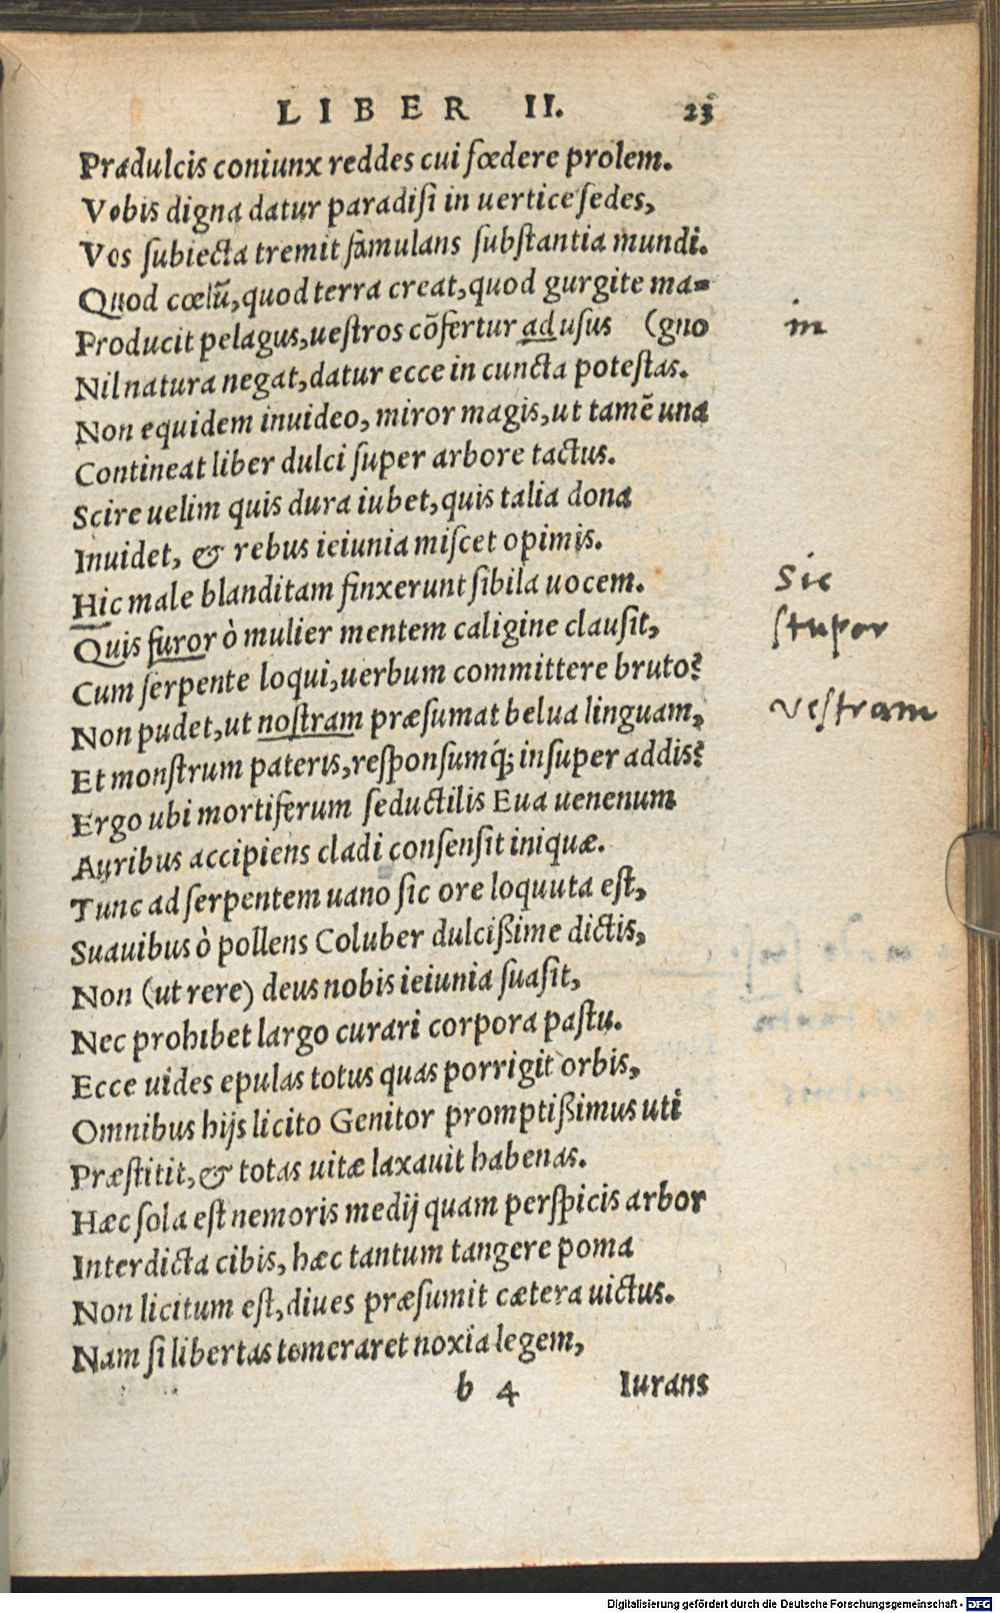 LIBER II. 23
Prædulcis coniunx reddes cui fœdere prolem.
Vobis digna datur paradisi in uertice sedes,
Vos subiecta tremit famulans substantia mundi.
Quod cœlũ, quod terra creat, quod gurgite ma-
Producit pelagus, uestros cõfertur ad usus (gno in
Nil natura negat, datur ecce in cuncta potestas.
Non equidem inuideo, miror magis, ut tamẽ una
Contineat liber dulci super arbore tactus.
Scire uelim quis dura iubet, quis talia dona
Inuidet, & rebus ieiunia miscet opimis.
Hic male blanditam finxerunt sibila uocem. Sic
Quis furor ò mulier mentem caligine clausit, stupor
Cum serpente loqui, uerbum committere bruto?
Non pudet, ut nostram præsumat belua linguam, vestram
Et monstrum pateris, responsumq́; insuper addis?
Ergo ubi mortiferum seductilis Eua uenenum
Auribus accipiens cladi consensit iniquæ.
Tunc ad serpentem uano sic ore loquuta est,
Suauibus ò pollens Coluber dulcißime dictis,
Non (ut rere) deus nobis ieiunia suasit,
Nec prohibet largo curari corpora pastu.
Ecce uides epulas totus quas porrigit orbis,
Omnibus hijs licito Genitor promptißimus uti
Præstitit, & totas uitæ laxauit habenas.
Hæc sola est nemoris medij quam perspicis arbor
Interdicta cibis, hæc tantum tangere poma
Non licitum est, diues præsumit cætera uictus.
Nam si libertas temeraret noxia legem,
b 4 Iurans
Digitalisierung gefördert durch die Deutsche Forschungsgemeinschaft - DFG